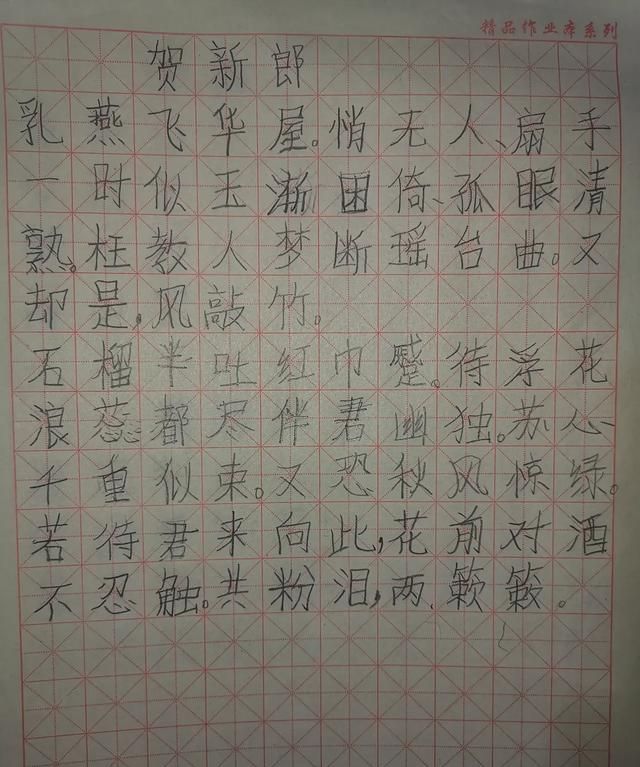 精品作业本系列
贺新郎
乳燕飞华屋。悄无人、扇手
一时似玉渐困倚、孤眠清
熟。枉教人梦断瑶台曲。又
却是,风敲竹。
石榴半吐红巾蹙。待浮花
浪蕊都尽伴君幽独。苏心
千重似束。又恐秋风惊绿。
若待君来向此,花前对酒
不忍触。共粉泪,两、簌簌。